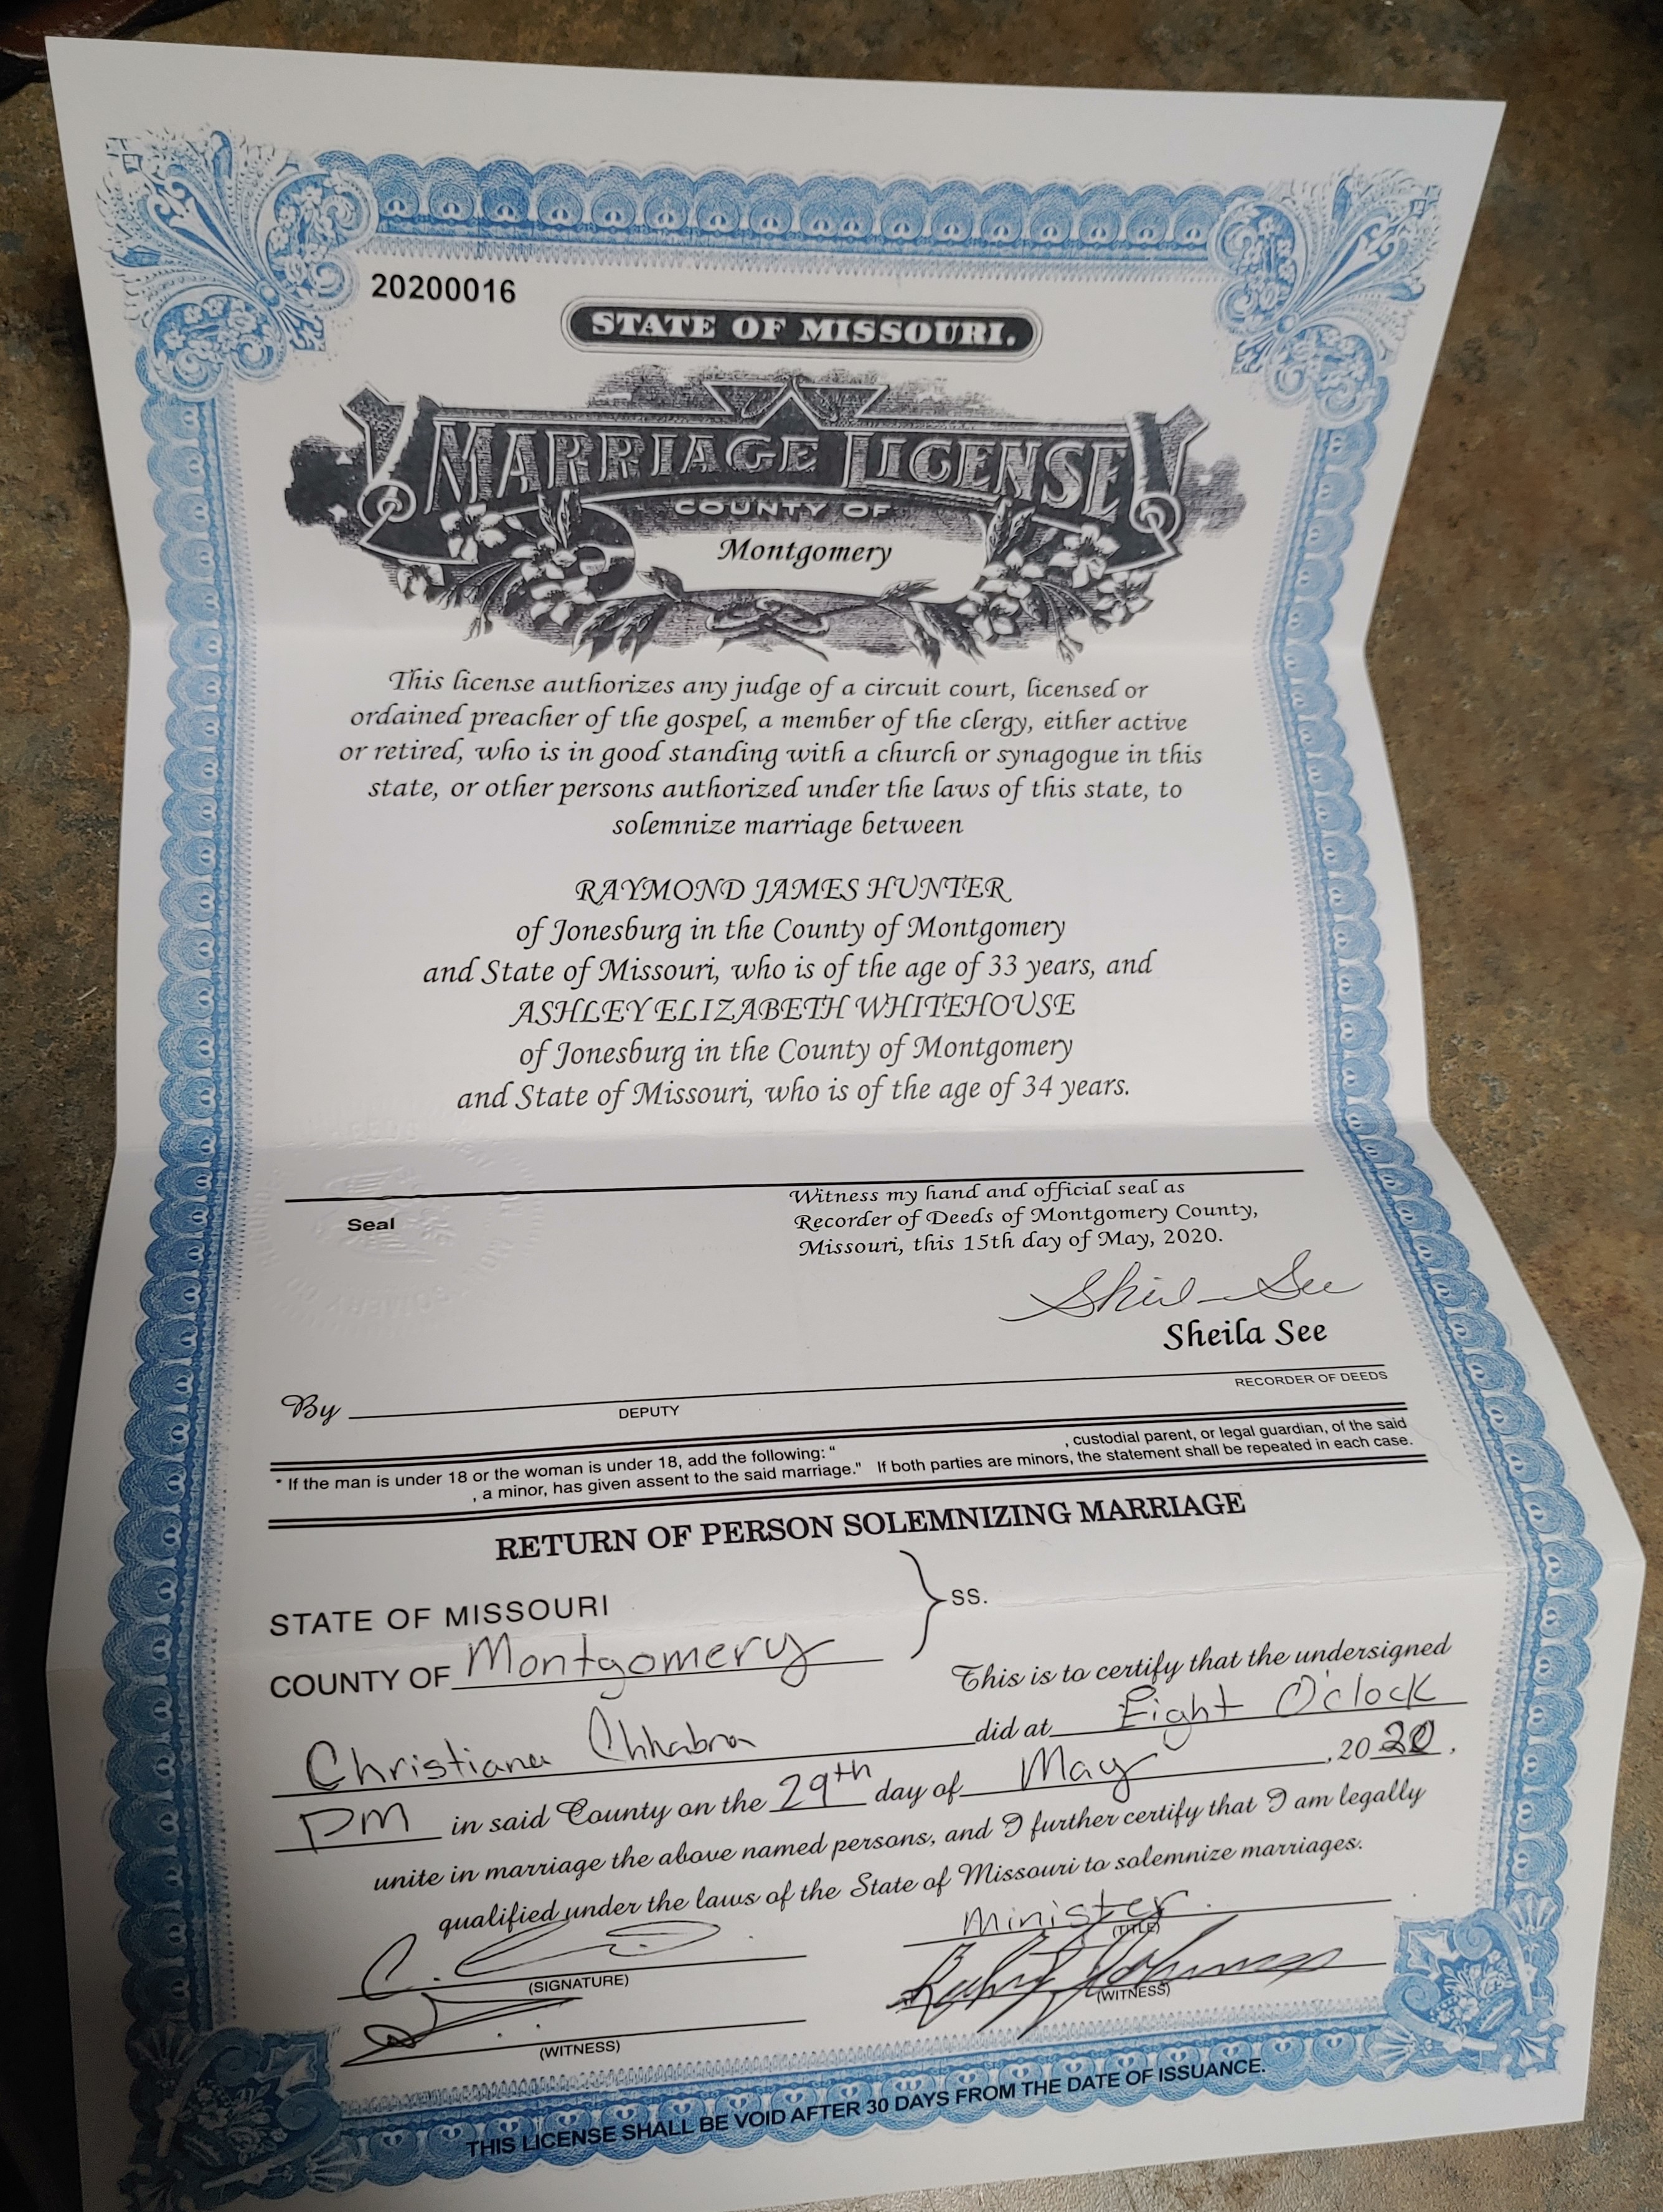 20200016
STATE OF MISSOURI.
MARRIAGE LICENSE
COUNTY OF
Montgomery
This license authorizes any judge of a circuit court, licensed or
ordained preacher of the gospel, a member of the clergy, either active
or retired, who is in good standing with a church or synagogue in this
state, or other persons authorized under the laws of this state, to
solemnize marriage between
RAYMOND JAMES HUNTER
of Jonesburg in the County of Montgomery
and State of Missouri, who is of the age of 33 years, and
ASHLEY ELIZABETH WHITEHOUSE
of Jonesburg in the County of Montgomery
and State of Missouri, who is of the age of 34 years.
Seal
Witness my hand and official seal as
Recorder of Deeds of Montgomery County,
Missouri, this 15th day of May, 2020.
Sheila See
Sheila See
RECORDER OF DEEDS
By
DEPUTY
* If the man is under 18 or the woman is under 18, add the following: " , custodial parent, or legal guardian, of the said
, a minor, has given assent to the said marriage." If both parties are minors, the statement shall be repeated in each case.
RETURN OF PERSON SOLEMNIZING MARRIAGE
STATE OF MISSOURI
SS.
COUNTY OF Montgomery
This is to certify that the undersigned
Christiana Chhabra did at Eight O'clock
PM in said County on the 29th day of May, 2020,
unite in marriage the above named persons, and I further certify that I am legally
qualified under the laws of the State of Missouri to solemnize marriages.
C.
(SIGNATURE)
Minister
(TITLE)
(WITNESS)
(WITNESS)
THIS LICENSE SHALL BE VOID AFTER 30 DAYS FROM THE DATE OF ISSUANCE.